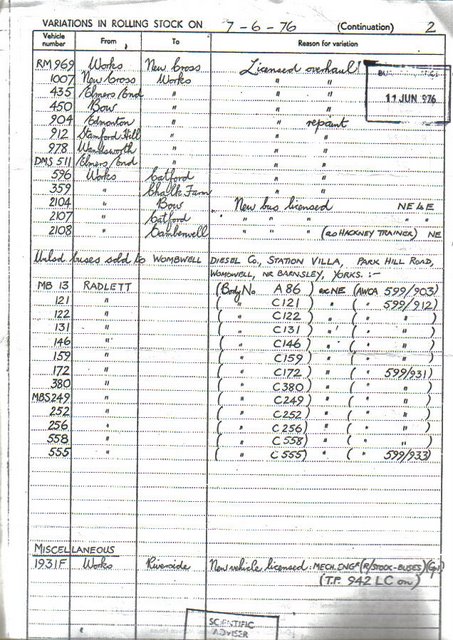 VARIATIONS IN ROLLING STOCK ON 7-6-76 (Continuation) 2
Vehicle number From To Reason for variation
RM 969 Works New Cross Licensed overhaul
1007 New Cross Works " " "
11 JUN 976
435 Elmers End " " "
450 Bow " " "
904 Edmonton " " repaint
912 Stamford Hill " " "
978 Wandsworth " " "
DMS 511 Elmers End " " "
596 Works Catford " "
359 " Chalk Farm " "
2104 " Bow New bus licensed NE4E
2107 " Catford " " " " "
2108 " Camberwell " " " (as HACKNEY TRAINER) NE
Unlicd buses sold to WOMBWELL DIESEL Co., STATION VILLA, PARK HILL ROAD,
WOMBWELL, NR BARNSLEY, YORKS. :-
MB 13 RADLETT (Body No A86) (AWOA 599/903)
121 " ( " C121 ) " ( " 599/912)
122 " ( " C122 ) " ( " " )
131 " ( " C131 ) " ( " " )
146 " ( " C146 ) " ( " " )
159 " ( " C159 ) " ( " " )
172 " ( " C172 ) " ( " 599/931)
380 " ( " C380 ) " ( " " )
MBS 249 " ( " C249 ) " ( " " )
252 " ( " C252 ) " ( " " )
256 " ( " C256 ) " ( " " )
558 " ( " C558 ) " ( " " )
555 " ( " C555 ) " ( " 599/933)
MISCELLANEOUS
1931F Works Riverside New vehicle licensed: MECH.ENGR (R/STOCK-BUSES)
(T.P. 942 LC on)
SCIENTIFIC
ADVISER